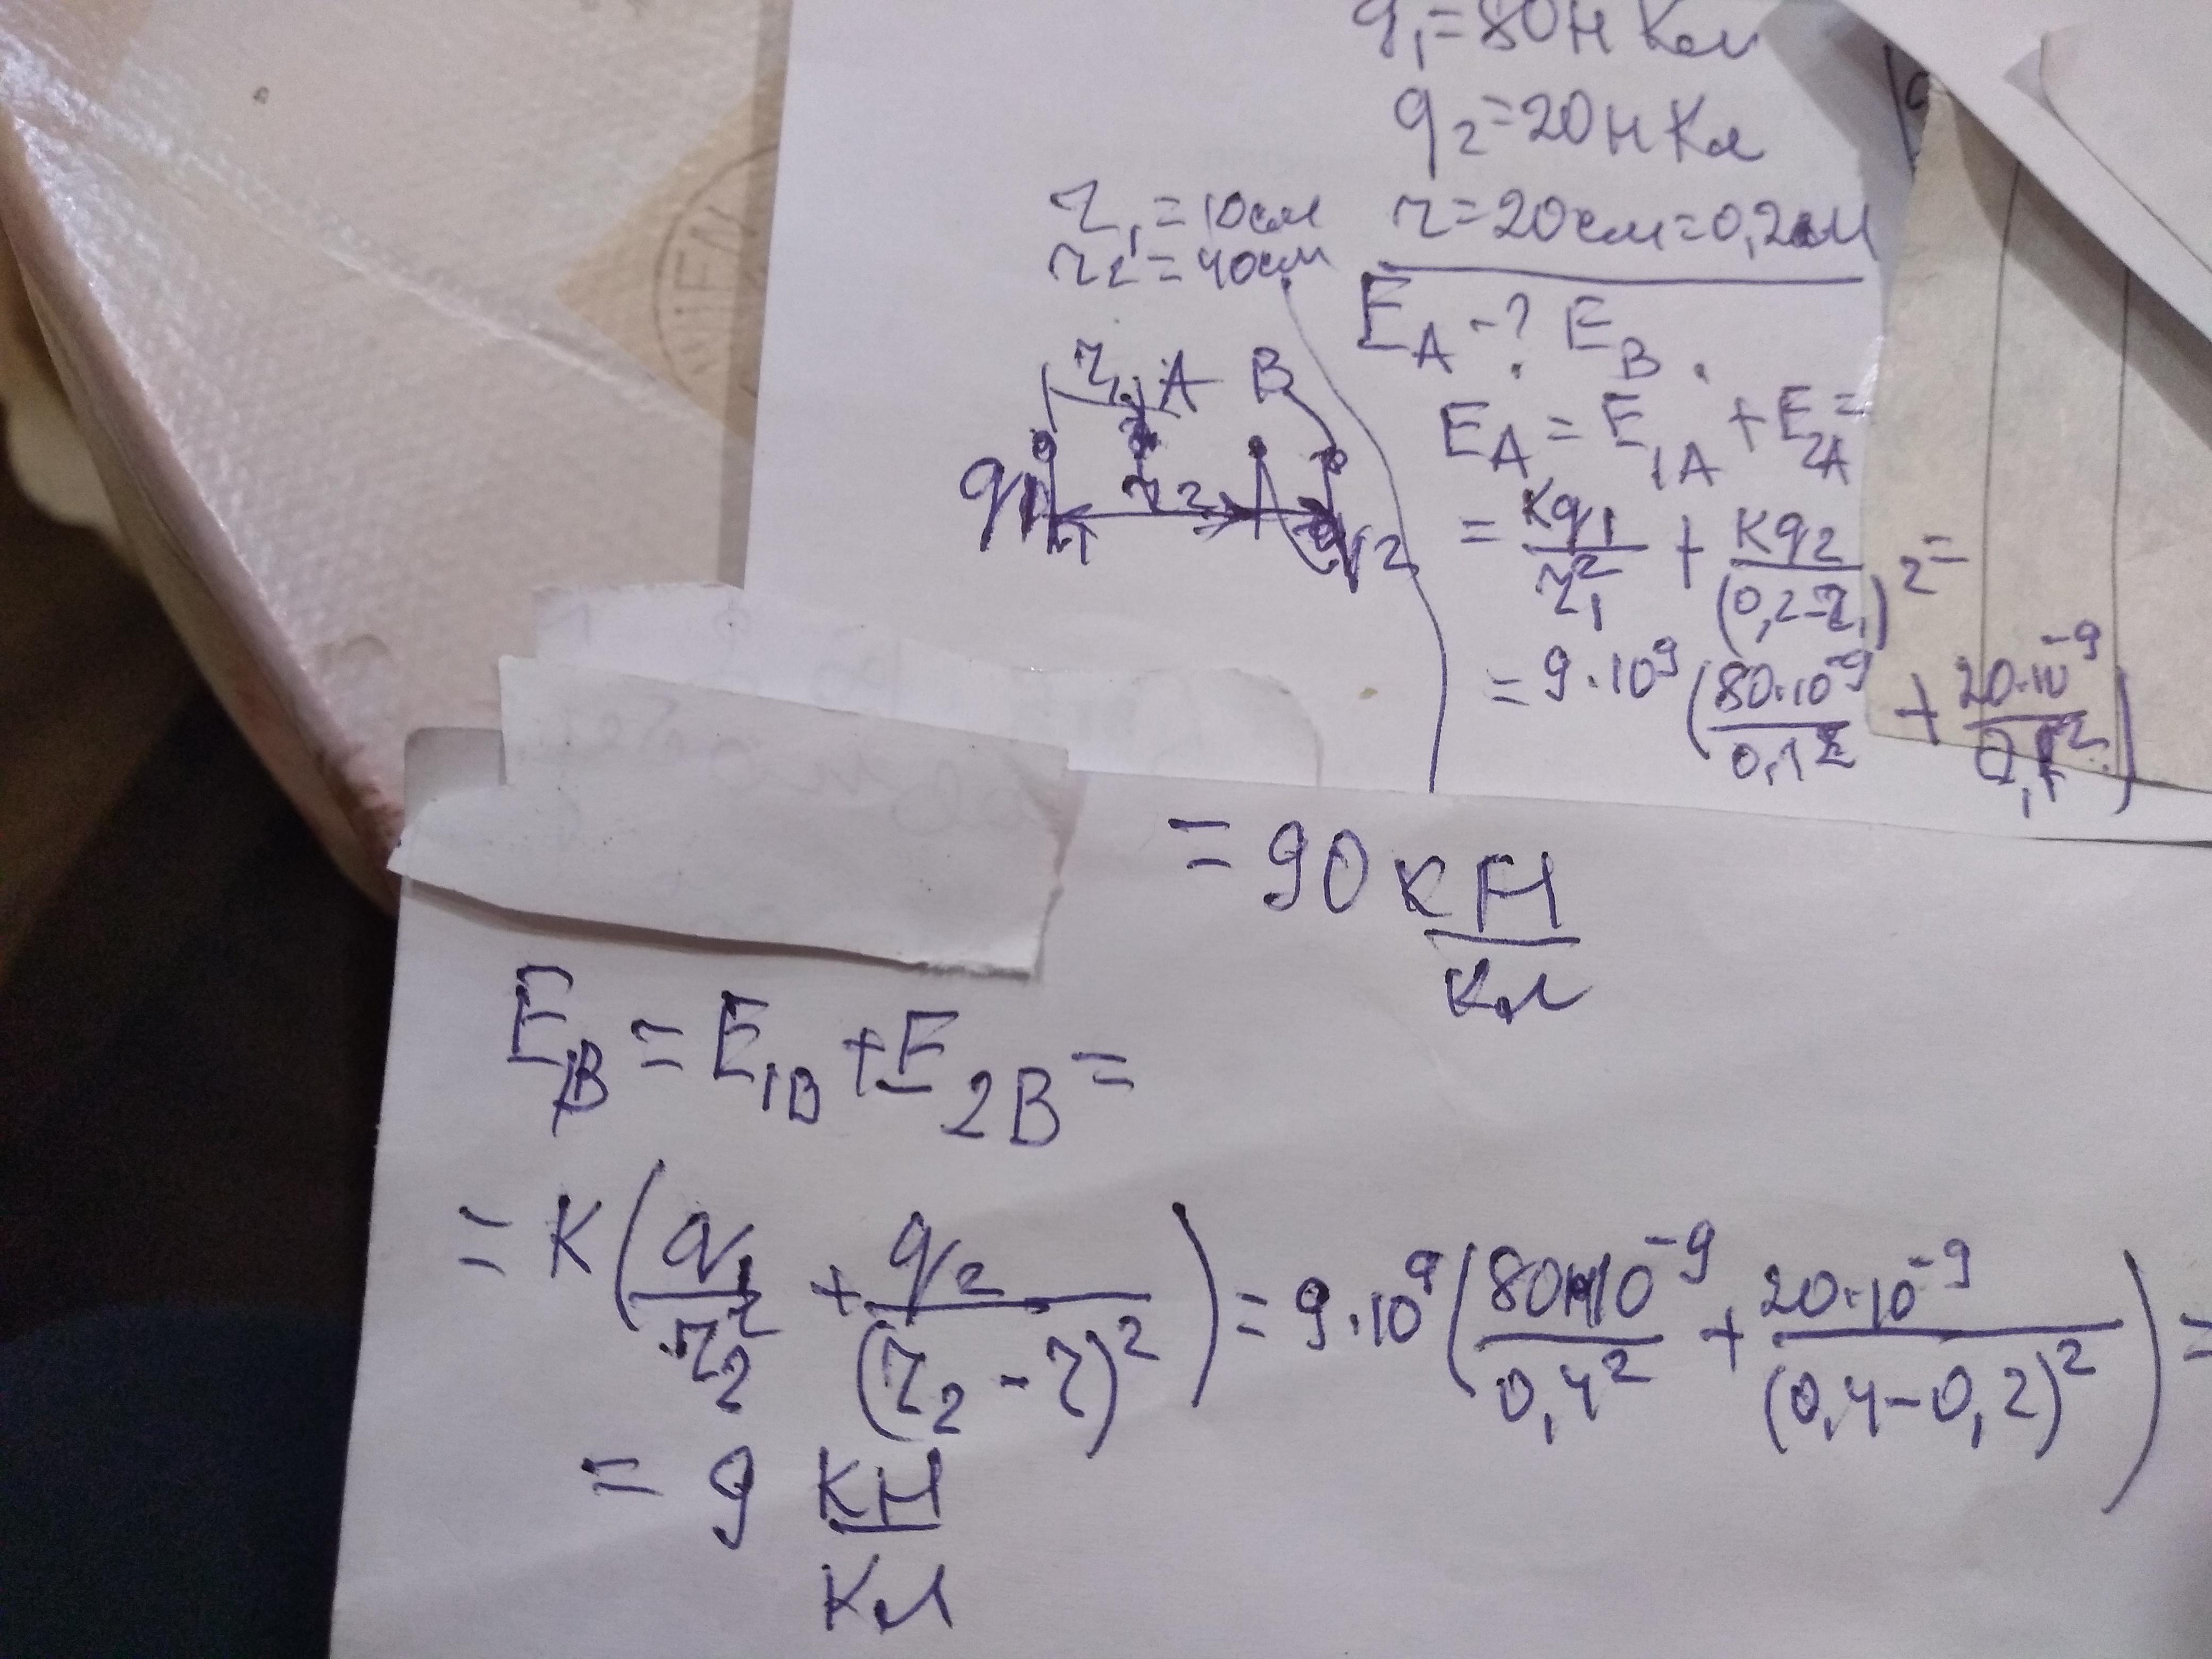 q₁=80н Кл
q₂=20н Кл
r₁=10см
r₂=40см
r=20см=0,2м
E_A-? E_B.
r₁ A B
q₁ r₂ q₂
E_A=E_1A+E_2A=
=kq₁/r₁²+kq₂/(0,2-r₁)²=
=9·10⁹(80·10⁻⁹/0,1²+20·10⁻⁹/0,1²)
=90 кН/Кл
E_B=E_1B+E_2B=
=K(q₁/r₂²+q₂/(r₂-r)²)=9·10⁹(80·10⁻⁹/0,4²+20·10⁻⁹/(0,4-0,2)²)=
=9 кН/Кл
WIEN